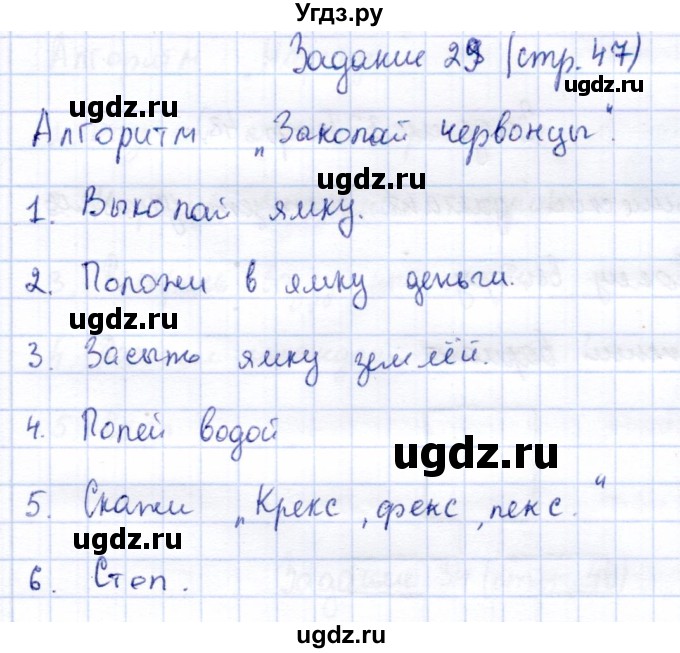 Угдз.ру
Задание 29 (стр. 47)
ugdz.ru
Алгоритм „Закопай червонцы“.
ugdz.ru
1. Выкопай ямку.
2. Положи в ямку деньги.
ugdz.ru
3. Засыпь ямку землёй.
4. Полей водой
ugdz.ru
5. Скажи „Крекс, фекс, пекс.“
ugdz.ru
6. Стоп.
ugdz.ru